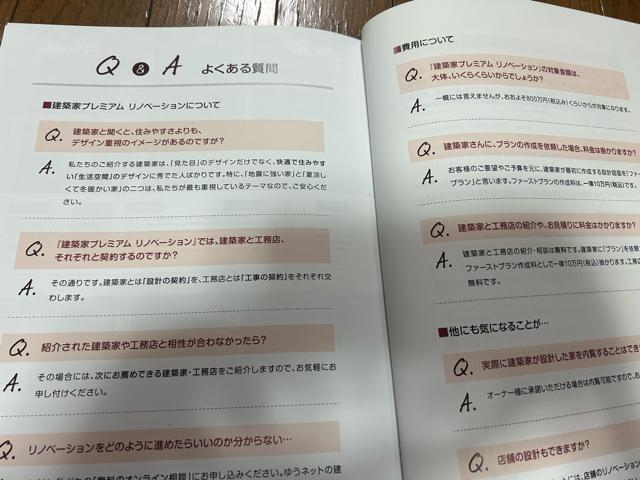 Q & A よくある質問
■建築家プレミアム リノベーションについて
Q. 建築家と聞くと、住みやすさよりも、
デザイン重視のイメージがあるのですが?
A. 私たちのご紹介する建築家は、「見た目」のデザインだけでなく、快適で住みやす
い「生活空間」のデザインに秀でた人ばかりです。特に、「地震に強い家」と「夏涼し
くて冬暖かい家」の二つは、私たちが最も重視しているテーマなので、ご安心くだ
さい。
Q. 『建築家プレミアム リノベーション』では、建築家と工務店、
それぞれと契約するのですか?
A. その通りです。建築家とは「設計の契約」を、工務店とは「工事の契約」をそれぞれ交
わします。
Q. 紹介された建築家や工務店と相性が合わなかったら?
A. その場合には、次にお薦めできる建築家・工務店をご紹介しますので、お気軽にお
申し付けください。
Q. リノベーションをどのように進めたらいいのか分からない…
「無料のオンライン相談」にお申し込みください。ゆうネットの建
■費用について
Q. 『建築家プレミアム リノベーション』の対象金額は、
大体、いくらくらいからでしょうか?
A. 一概には言えませんが、おおよそ800万円(税込み)くらいからが対象になります。
Q. 建築家さんに、プランの作成を依頼した場合、料金は掛かりますか?
A. お客様のご要望やご予算を元に、建築家が最初に作成する設計図面を「ファー
プラン」と言います。ファーストプランの作成料は、一律10万円(税込)で
Q. 建築家と工務店の紹介や、お見積りに料金はかかりますか?
A. 建築家と工務店の紹介・相談は無料です。建築家に「プラン」を依頼
ファーストプラン作成料として一律10万円(税込)掛かります。工務
無料です。
■他にも気になることが…
Q. 実際に建築家が設計した家を内覧することはでき
A. オーナー様に承諾いただける場合は内覧可能ですので、お
Q. 店舗の設計もできますか?
には、店舗のリノベーション